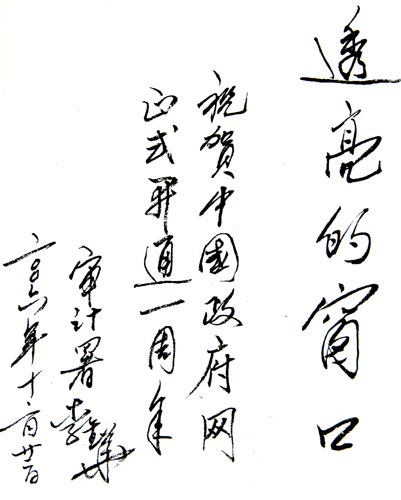 透亮的窗口
祝賀中國政府网
正式开通一周年
审计署 李金华
二〇〇六年十二月廿日